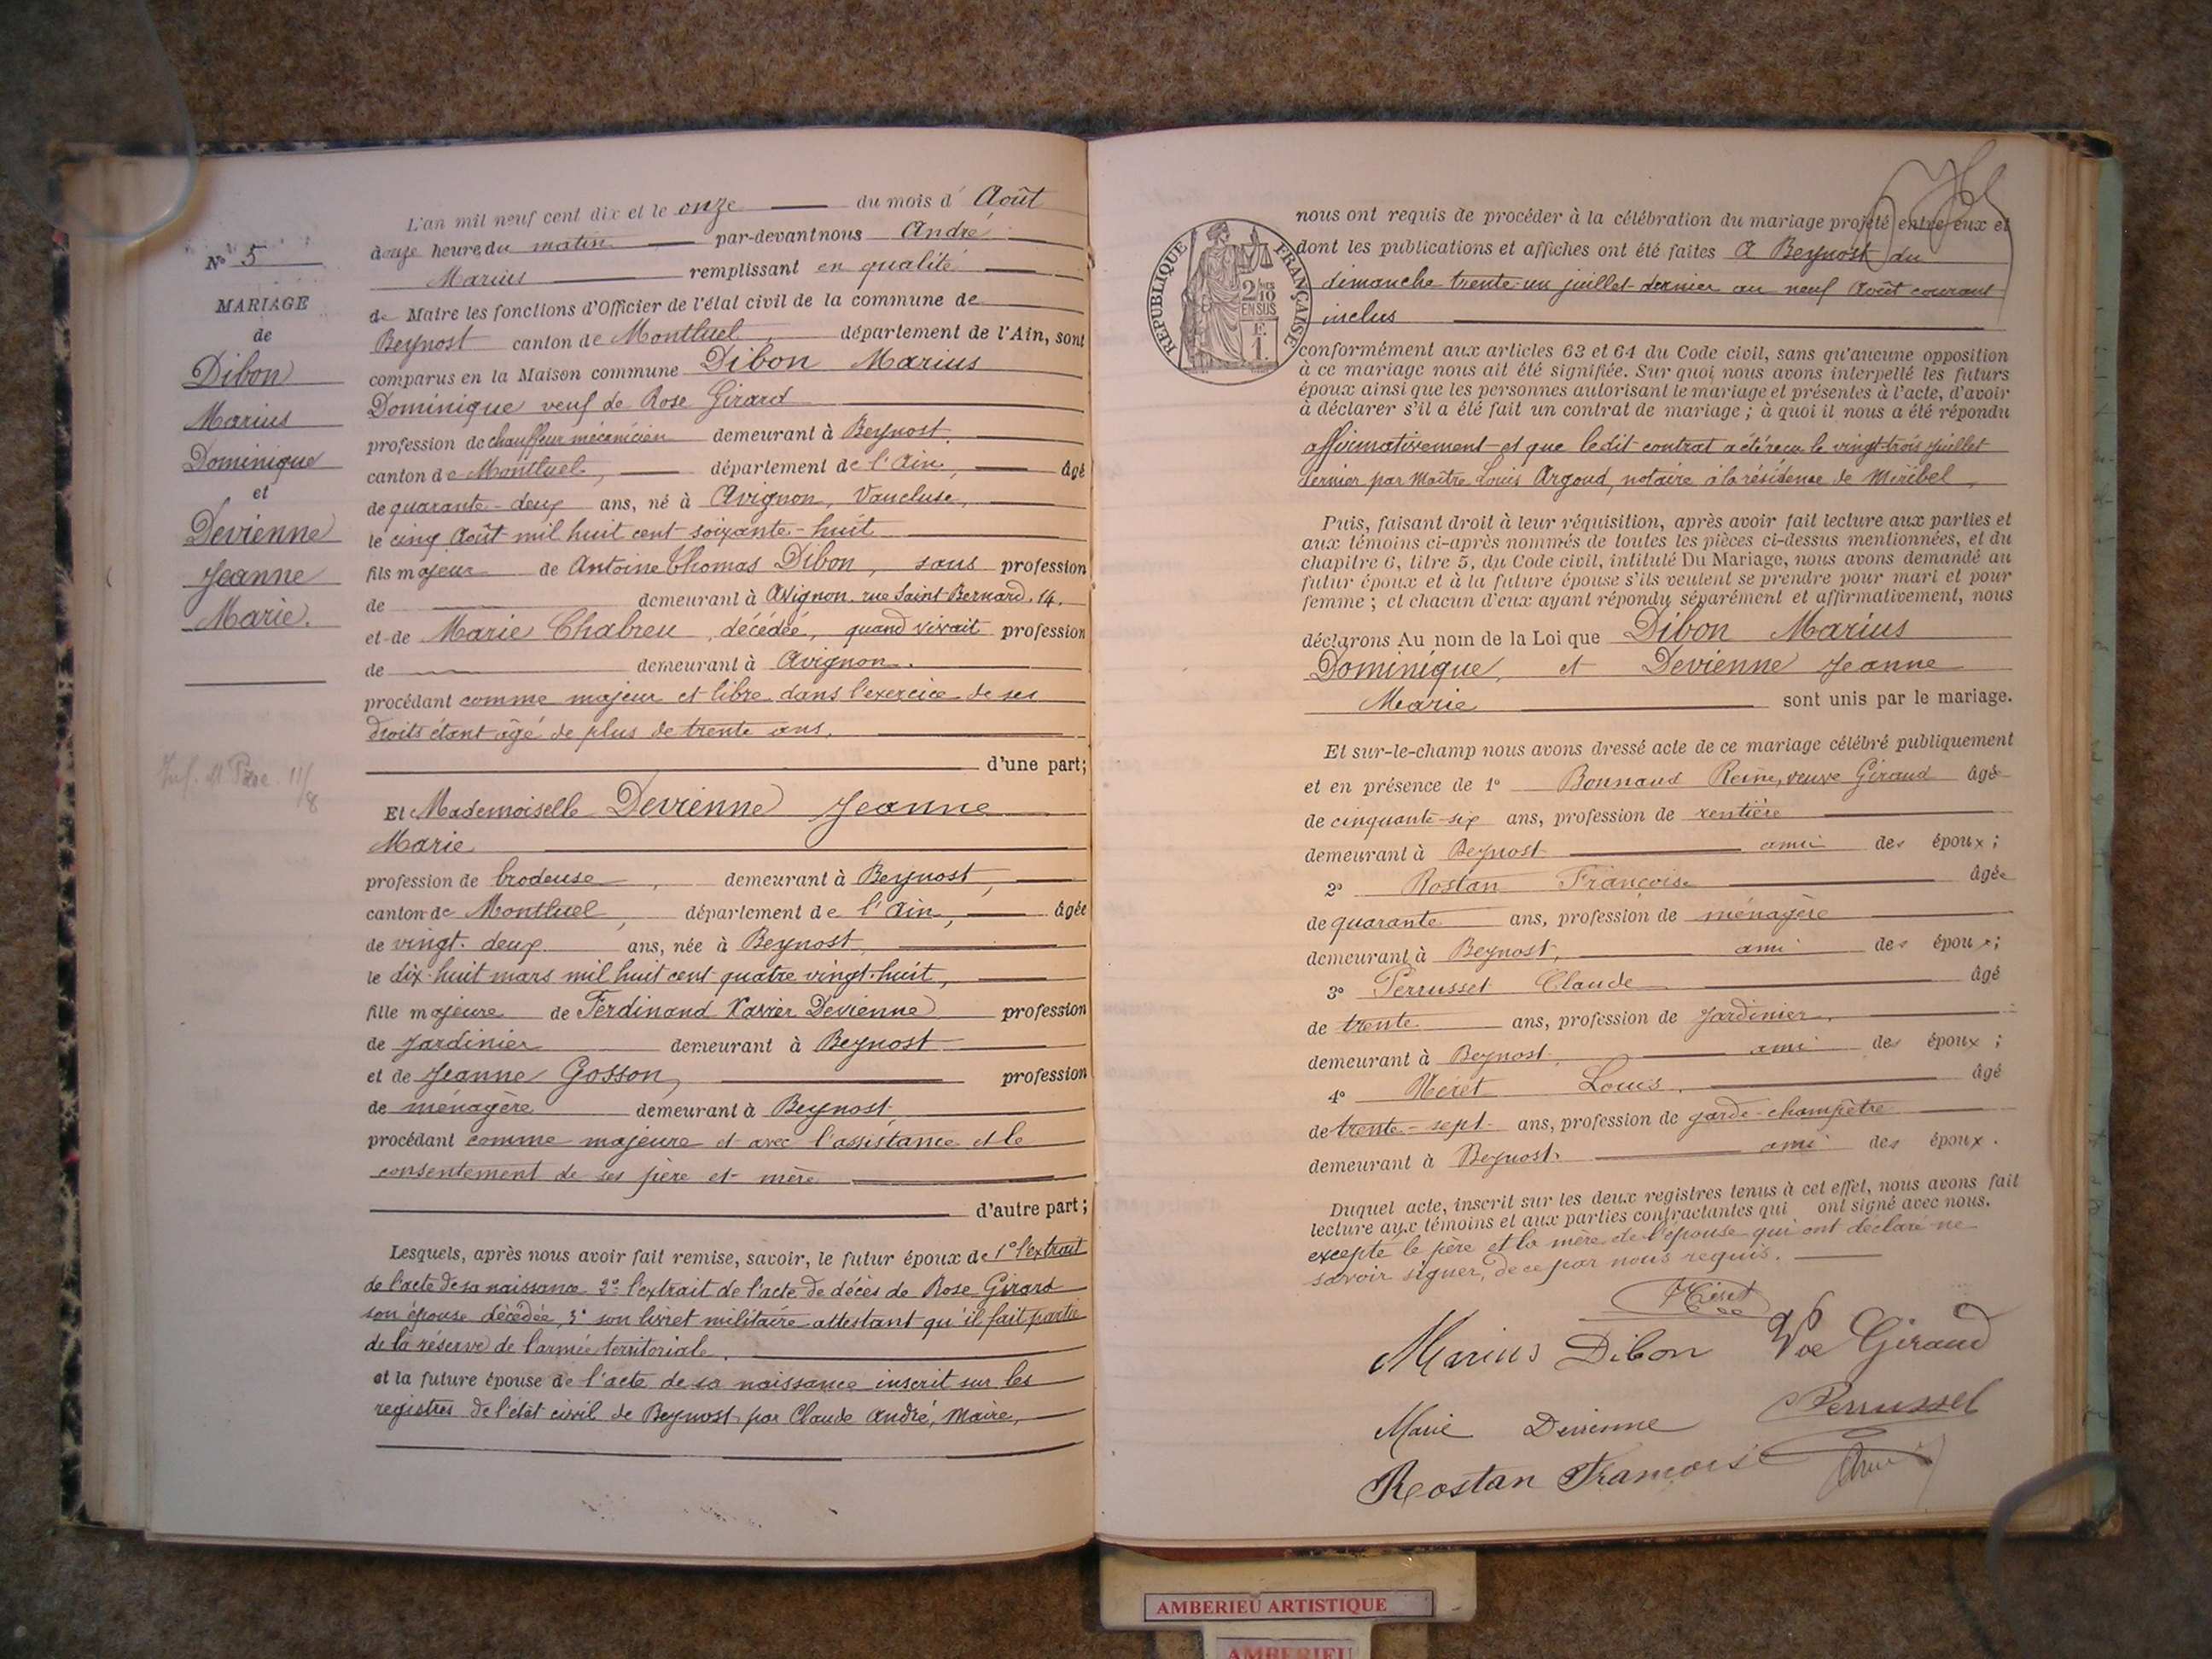 N° 5
MARIAGE
de
Dibon
Marius
Dominique
et
Devienne
Jeanne
Marie.
L'an mil neuf cent dix et le onze du mois d' Août
à onze heure du matin par-devant nous André
Marius remplissant en qualité
de Maire les fonctions d'Officier de l'état civil de la commune de
Beynost canton de Montluel, département de l'Ain, sont
comparus en la Maison commune Dibon Marius
Dominique veuf de Rose Girard
profession de chauffeur mécanicien demeurant à Beynost
canton de Montluel, département de l'Ain, âgé
de quarante-deux ans, né à Avignon, Vaucluse,
le cinq Août mil huit cent soixante-huit
fils majeur de Antoine Thomas Dibon, sans profession
de demeurant à Avignon, rue Saint-Bernard, 14.
et de Marie Chabreu, décédée, quand vivait profession
de demeurant à Avignon.
procédant comme majeur et libre dans l'exercice de ses
droits étant âgé de plus de trente ans.
d'une part;
Et Mademoiselle Devienne Jeanne
Marie
profession de brodeuse, demeurant à Beynost,
canton de Montluel, département de l'Ain, âgée
de vingt-deux ans, née à Beynost,
le dix-huit mars mil huit cent quatre vingt-huit,
fille majeure de Ferdinand Xavier Devienne profession
de Jardinier demeurant à Beynost
et de Jeanne Gosson, profession
de ménagère demeurant à Beynost,
procédant comme majeure et avec l'assistance et le
consentement de ses père et mère
d'autre part;
Lesquels, après nous avoir fait remise, savoir, le futur époux de 1° l'extrait
de l'acte de sa naissance 2° l'extrait de l'acte de décès de Rose Girard
son épouse décédée, 3° son livret militaire attestant qu'il fait partie
de la réserve de l'armée territoriale.
et la future épouse de l'acte de sa naissance inscrit sur les
registres de l'état civil de Beynost par Claude André, Maire,
RÉPUBLIQUE FRANÇAISE
2/10
EN SUS
F.
1.
nous ont requis de procéder à la célébration du mariage projeté entre eux et
dont les publications et affiches ont été faites A Beynost du
dimanche trente-un juillet dernier au neuf Août courant
inclus
conformément aux articles 63 et 64 du Code civil, sans qu'aucune opposition
à ce mariage nous ait été signifiée. Sur quoi, nous avons interpellé les futurs
époux ainsi que les personnes autorisant le mariage et présentes à l'acte, d'avoir
à déclarer s'il a été fait un contrat de mariage ; à quoi il nous a été répondu
affirmativement et que ledit contrat a été reçu le vingt-trois juillet
dernier par Maître Louis Argoud, notaire à la résidense de Miribel,
Puis, faisant droit à leur réquisition, après avoir fait lecture aux parties et
aux témoins ci-après nommés de toutes les pièces ci-dessus mentionnées, et du
chapitre 6, titre 5, du Code civil, intitulé Du Mariage, nous avons demandé au
futur époux et à la future épouse s'ils veulent se prendre pour mari et pour
femme ; et chacun d'eux ayant répondu séparément et affirmativement, nous
déclarons Au nom de la Loi que Dibon Marius
Dominique, et Devienne Jeanne
Marie sont unis par le mariage.
Et sur-le-champ nous avons dressé acte de ce mariage célébré publiquement
et en présence de 1° Bonnaud Reine, veuve Giraud âgé
de cinquante-six ans, profession de rentière
demeurant à Beynost ami des époux ;
2° Rostan Françoise âgée
de quarante ans, profession de ménagère
demeurant à Beynost, ami des époux ;
3° Perrusset Claude âgé
de trente ans, profession de Jardinier,
demeurant à Beynost, ami des époux ;
4° Louis, âgé
de trente-sept ans, profession de garde-champêtre
demeurant à Beynost. ami des époux.
Duquel acte, inscrit sur les deux registres tenus à cet effet, nous avons fait
lecture aux témoins et aux parties contractantes qui ont signé avec nous.
excepté le père et la mère de l'épouse qui ont déclaré ne
savoir signer, de ce par nous requis.
Marius Dibon Vve Giraud
Marie Devienne Perrusset
Rostan Françoise
AMBERIEU ARTISTIQUE
AMBERIEU